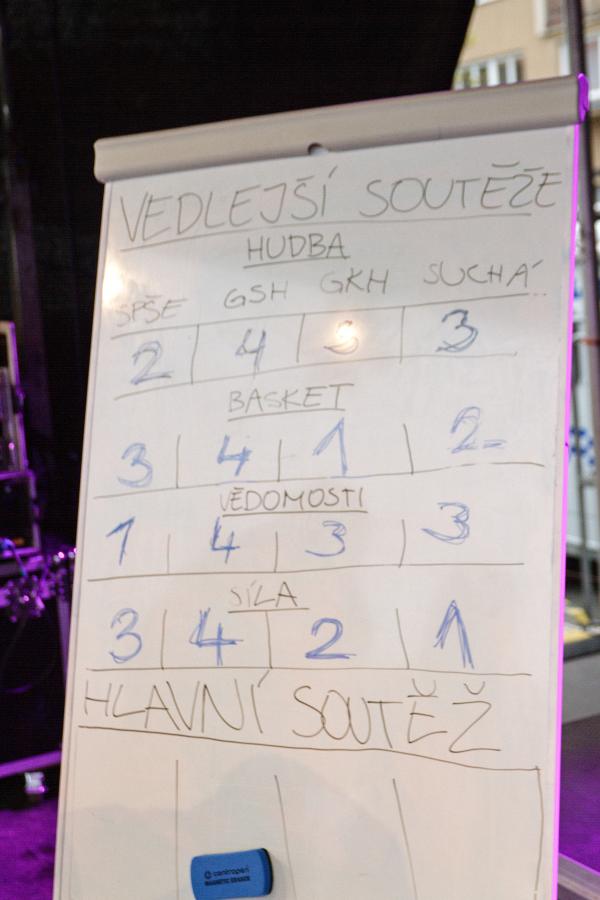 VEDLEJŠÍ SOUTĚŽE
HUDBA
SPŠE GSH GKH SUCHÁ
2 4 3 3
BASKET
3 4 1 2
VĚDOMOSTI
1 4 3 3
SÍLA
3 4 2 1
HLAVNÍ SOUTĚŽ
centropen
MAGNETIC ERASER